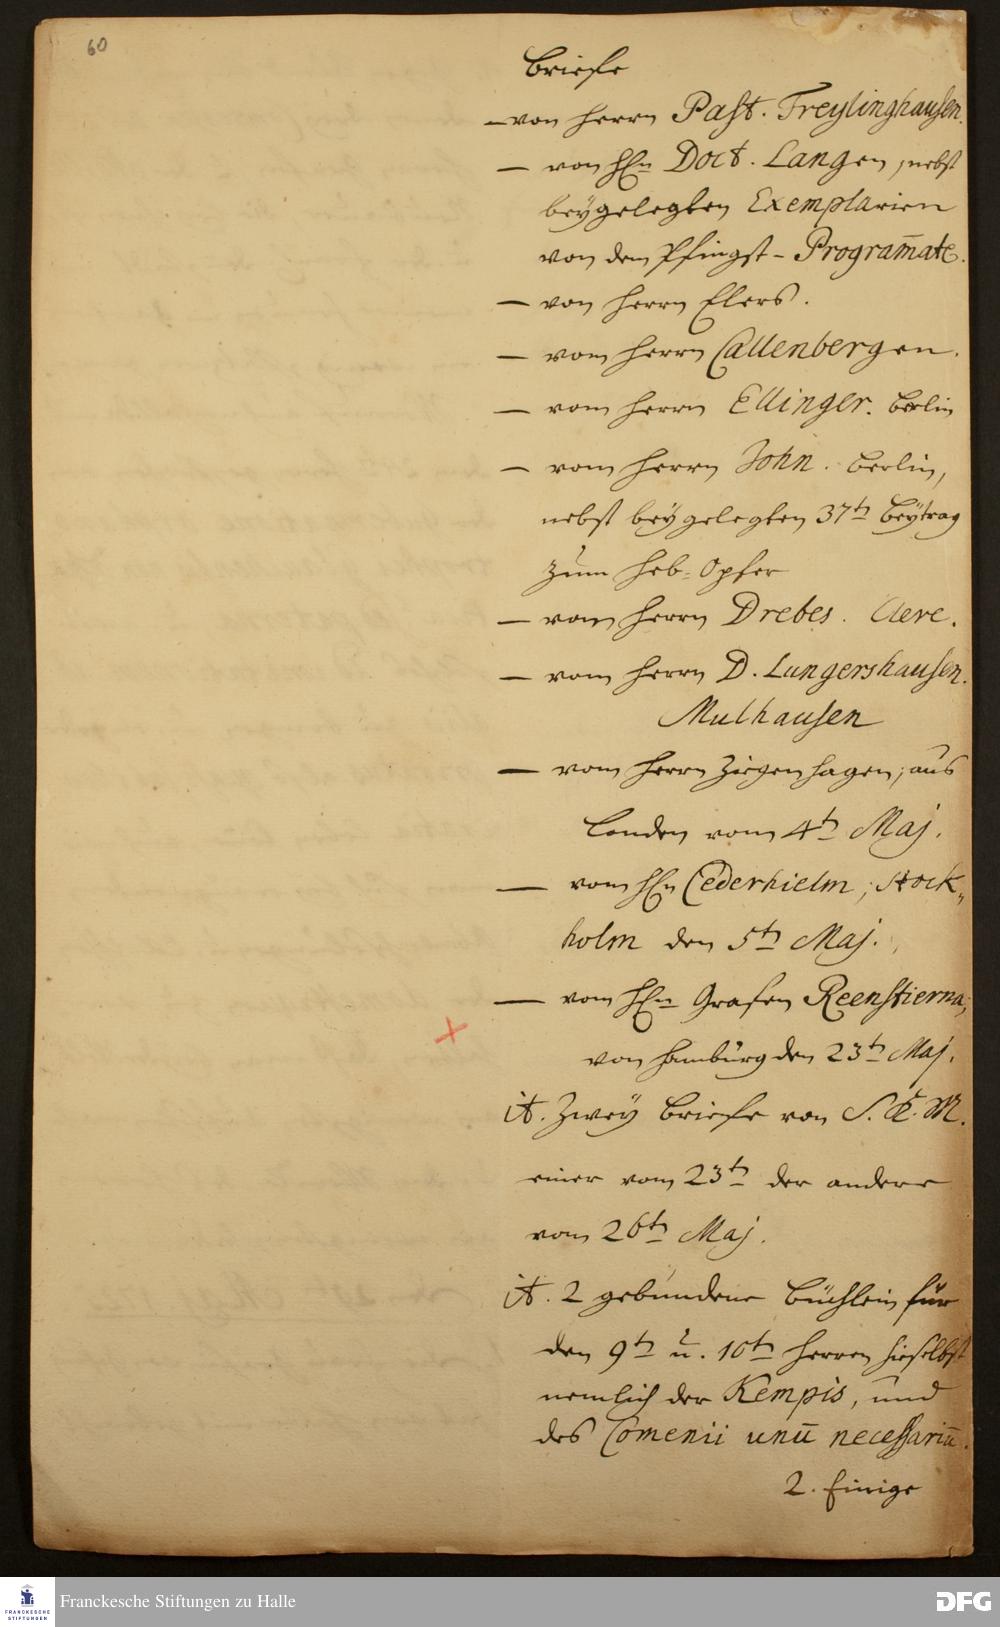 60
Briefe
– von Herrn Past. Freylinghausen.
– von HEn Doct. Langen, nebst
beygelegten Exemplarien
von dem Pfingst-Programate.
– von Herrn Elers.
– vom Herrn Callenbergen.
– vom Herrn Ellinger. Berlin
– vom Herrn John. Berlin,
nebst beygelegten 37tn Beytrag
zum Heb-Opfer
– vom Herrn Drebes. Cleve.
– vom Herrn D. Lungershausen.
Mulhausen
– vom Herrn Ziegenhagen, aus
Londen vom 4tn Maj.
– vom HEn Cederhielm, Stock-
holm den 5tn Maj.
– vom HEn Grafen Reenstierna,
von Hamburg den 23tn Maj.
it. Zwey Briefe von S. K. M.
einer vom 23tn der andere
vom 26tn Maj.
it. 2 gebundene Büchlein für
den 9tn u. 10tn Herren hieselbst
nemlich der Kempis, und
des Comenii unū necessariū.
2. Einige
FRANCKESCHE
STIFTUNGEN
Franckesche Stiftungen zu Halle
DFG